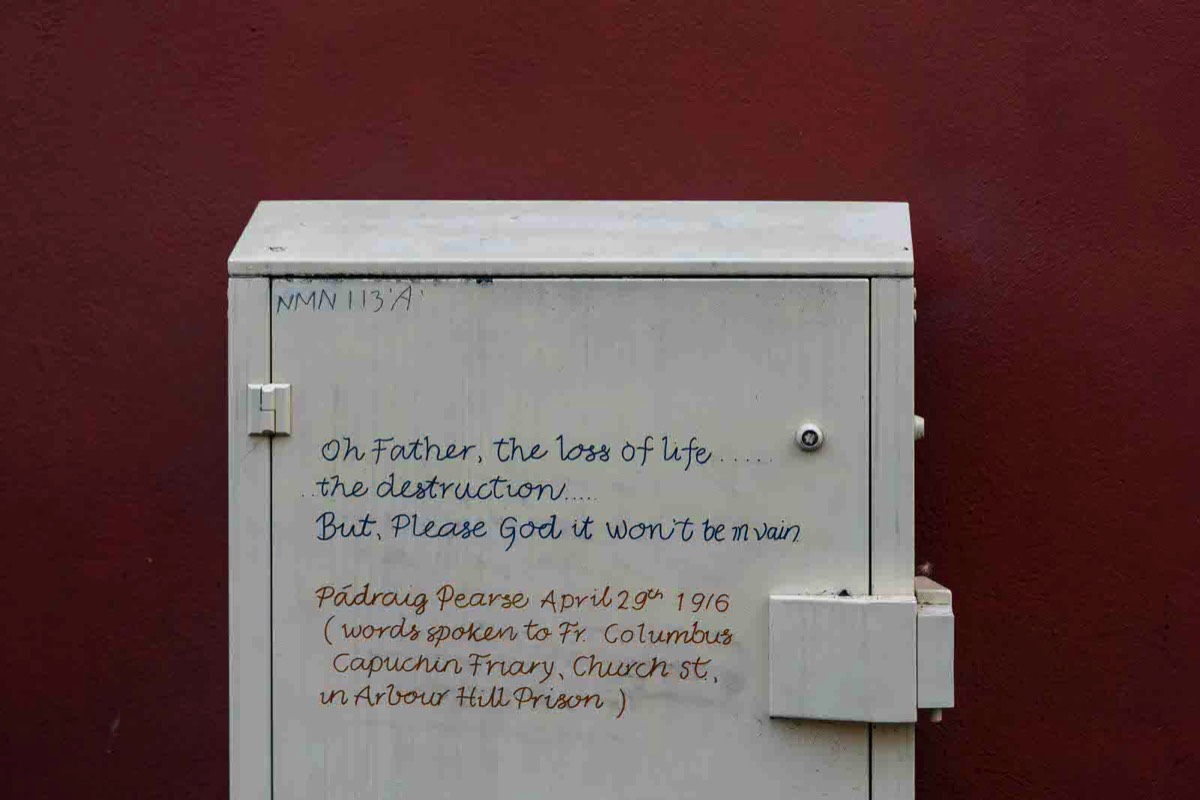 NMN 113'A'
Oh Father, the loss of life .....
..the destruction.....
But, Please God it won't be in vain
Pádraig Pearse April 29th 1916
(words spoken to Fr. Columbus
Capuchin Friary, Church st,
in Arbour Hill Prison )